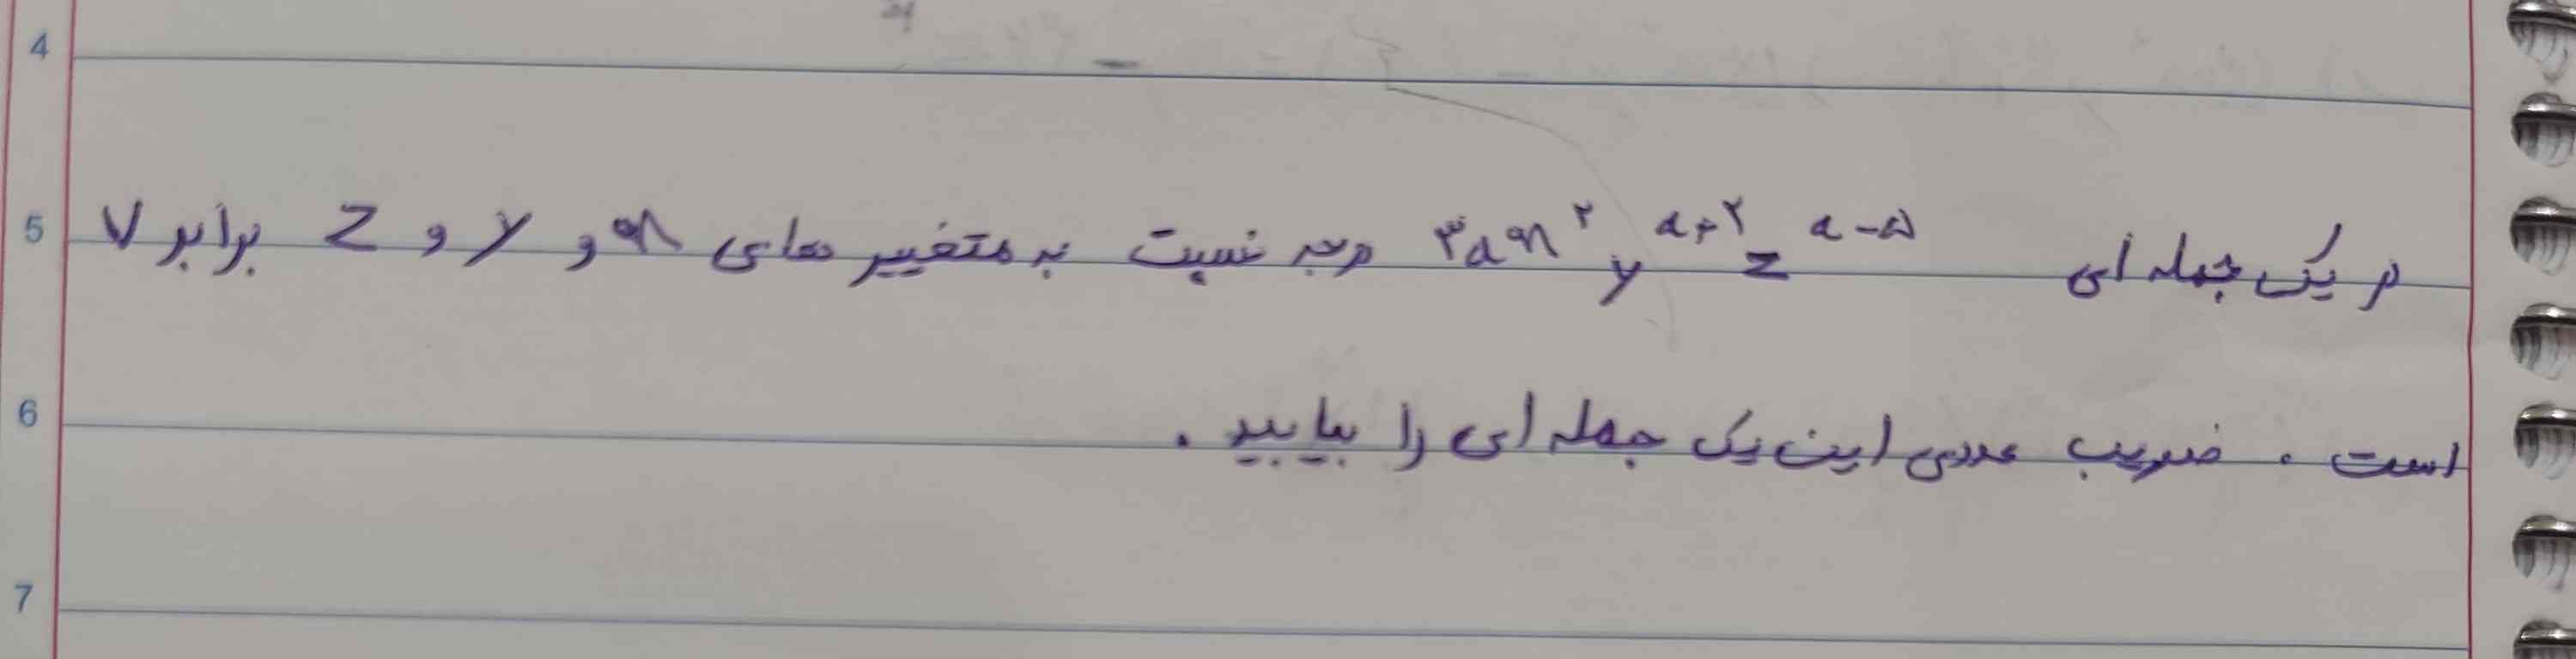 4
5 در یک جمله ای ۳ax^۲ y^{a+۲} z^{a-۵} درجه نسبت به متغییر های x و y و z برابر ۷
6 است . ضریب عددی این یک جمله ای را بیابید .
7